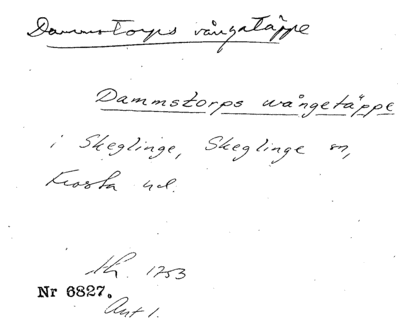 Dammstorps vångatäppe
Dammstorps wångetäppe
i Skeglinge, Skeglinge sn,
Frosta hd.
Sk. 1753
Nr 6827.
Akt 1.